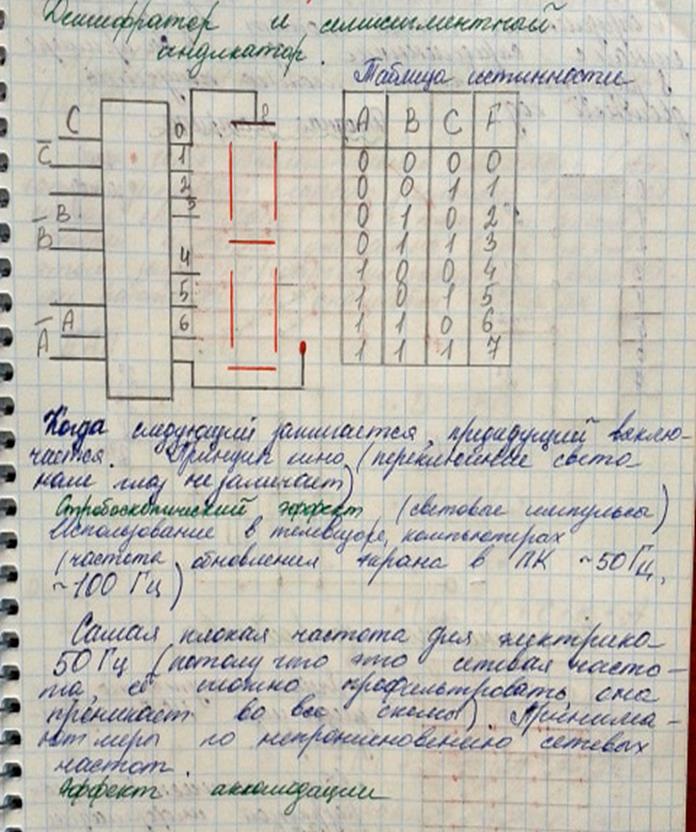 Дешифратор и семисигментный
индикатор.
Таблица истинности
C
C̅
B
B̅
A
A̅
0
1
2
3
4
5
6
8
A B C F
0 0 0 0
0 0 1 1
0 1 0 2
0 1 1 3
1 0 0 4
1 0 1 5
1 1 0 6
1 1 1 7
Когда следующий зажигается, предыдущий выклю-
чается. Принцип кино (переключение света
наш глаз не замечает)
Стробоскопический эффект (световые импульсы)
Использование в телевизоре, компьютерах
(частота обновления экрана в ПК ~50 Гц,
~100 Гц)
Самая плохая частота для электрико-
50 Гц (потому что это сетевая часто-
та, её сложно профильтровать, она
проникает во все схемы). Принима-
ют меры по непроникновению сетевых
частот.
Эффект аккомодации